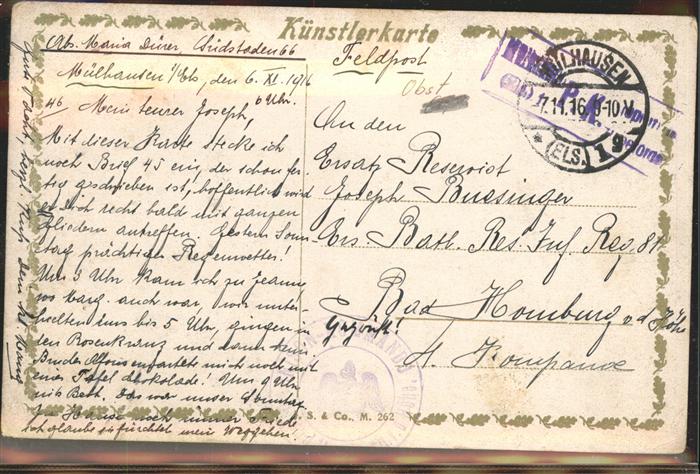 Künstlerkarte
Abs. Maria Dürer, Südstaden 66
Feldpost
Mülhausen i/Els, den 6. XI. 1916
6 Uhr.
46 Mein teurer Joseph,
Mit dieser Karte stecke ich
noch Brief 45 ein, der schon fer-
tig geschrieben ist, hoffentlich wird
er Dich recht bald mit ganzen
Gliedern antreffen. Gestern Sonn-
tag prächtiges Regenwetter!
Um 3 Uhr kam ich zu Jeanne
wo Marg. auch war, wir unter-
hielten uns bis 5 Uhr, gingen in
den Rosenkranz und dann kam
Bruder mich noch mit
einer Tafel Chokolade! Um 9 Uhr
ins Bett. Das war unser Sonntag
Im Hause noch immer Friede
ich glaube sie fürchtet mein Weggehen.
Obst
MÜLHAUSEN
7.11.16. 9-10 V.
* (ELS.) 1 g
P.K.
An den
Ersatz Reservist
Joseph Buesinger
Ers. Batl. Res. Inf. Reg. 81
Bad Homburg v. d. Höhe
4. Kompanie
S. & Co., M. 262